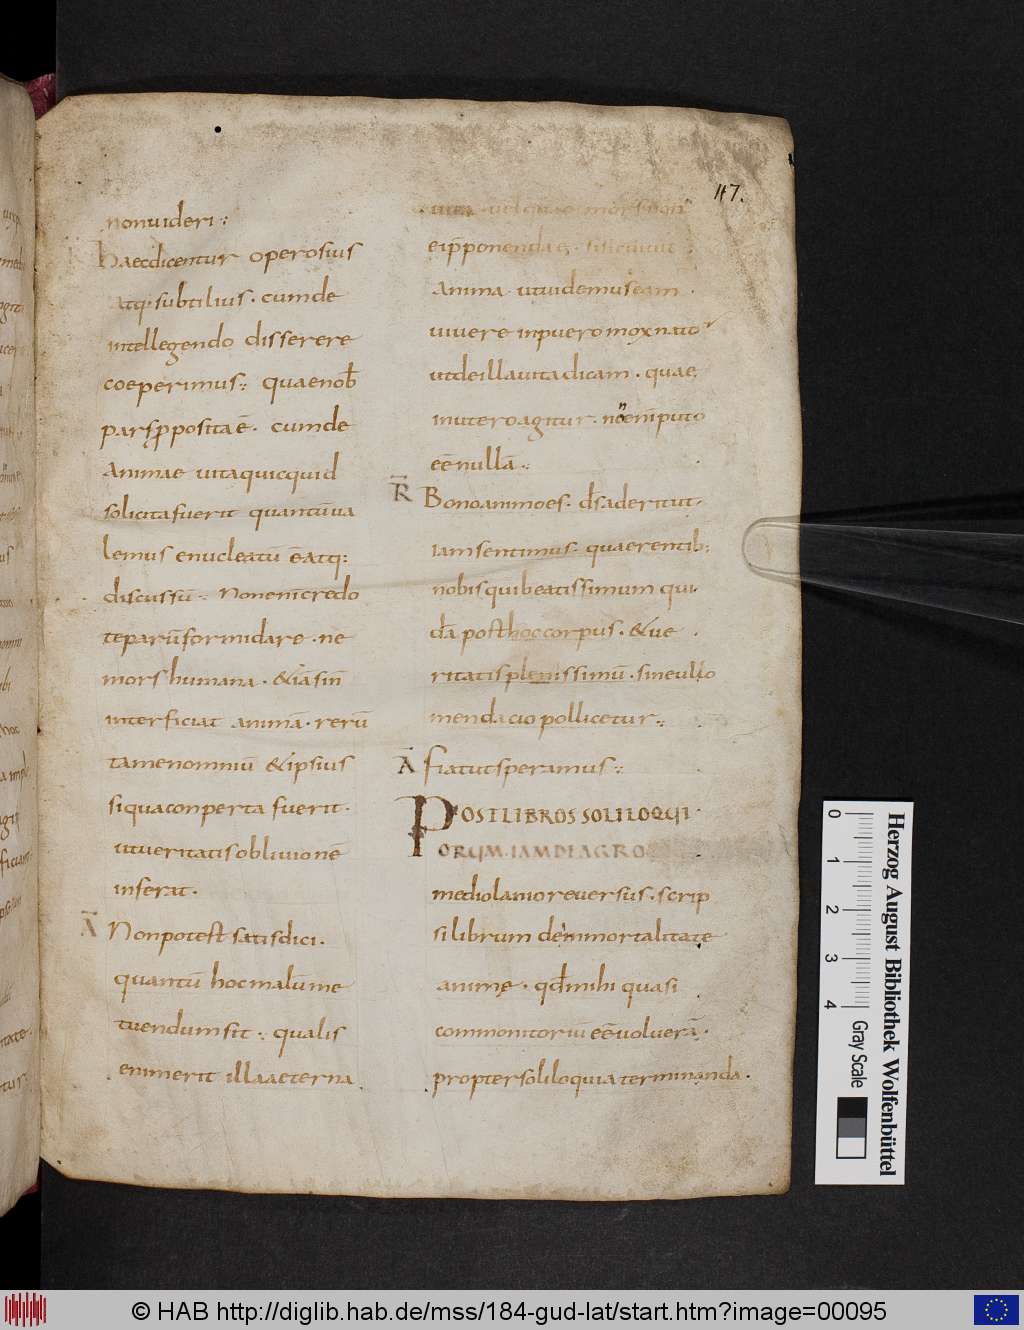 47.
non uideri :
haec dicentur operosius
atq· subtilius · cum de
intellegendo disserere
coeperimus :: quae nob̄
pars p̄posita ē · cum de
animae uita quicquid
solicita fuerit quantū ua
lemus enucleatū ē atq:
discussū :: Non enī credo
te parū formidare · ne
mors humana · & iā sin̄
interficiat animā · rerū
tamen omniū & ipsius
siqua conperta fuerit ·
ut ueritatis obliuionē
inserat ·
Ā Non potest satis dici ·
quantū hoc malū me
tuendum sit :· qualis
enim erit illa aeterna
uita · uel quae mors non
ei p̄ponenda ē · si sic uiuit
anima · ut uidemus eam ·
uiuere in puero mox nato
ut de illa uita dicam · quae
in utero agitur · non enī puto
eē nullā ::
R̄ Bono animo es · ds̄ aderit ut ·
iam sentimus · quaerentib:
nobis qui beatissimum qui
dā post hoc corpus · & ue
ritatis plenissimū · sine ullo
mendacio pollicetur ::
Ā fiat ut speramus ::
POST LIBROS SOLILOQUI
ORUM · IAM DE AGRO
mediolanio reuersus · scrip
si librum de inmortalitate
animę · qđ mihi quasi
commonitoriū eē uolueră ·
propter soliloquia terminanda ·
0 1 2 3 4
Gray Scale
Herzog August Bibliothek Wolfenbüttel
© HAB http://diglib.hab.de/mss/184-gud-lat/start.htm?image=00095